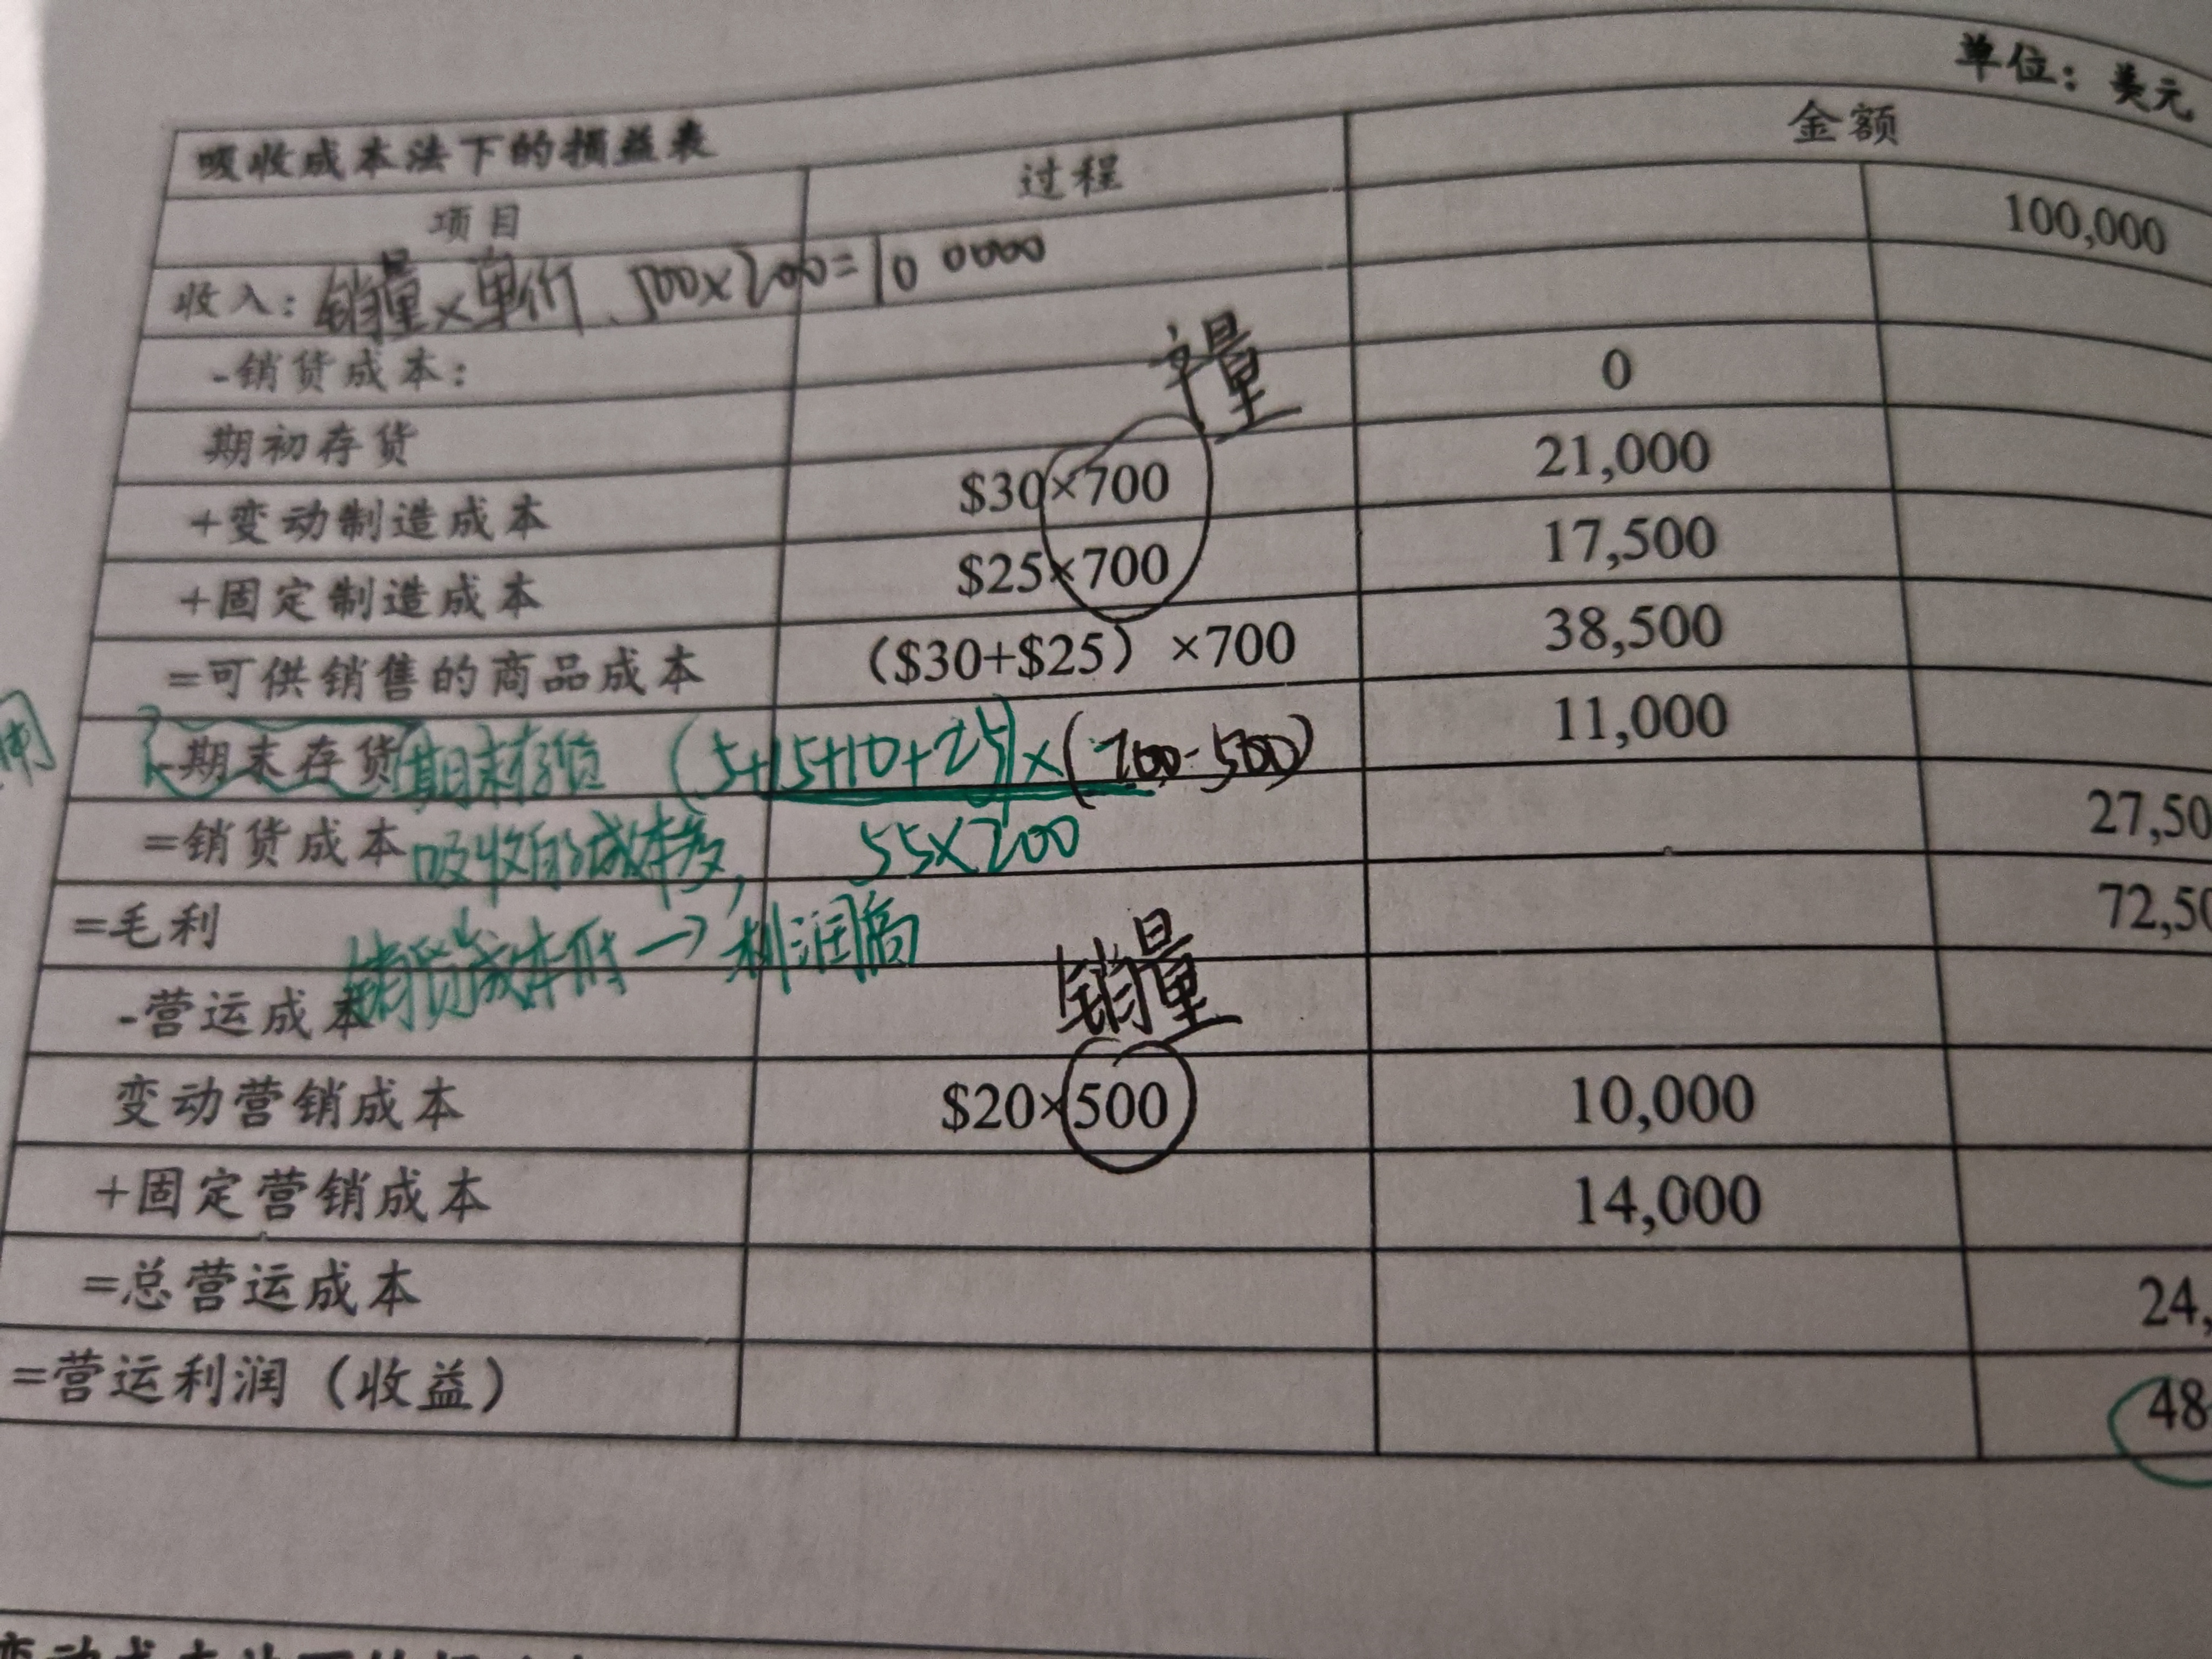 单位：美元
吸收成本法下的损益表
项目 过程 金额
收入：销量×单价 500×200=10 0000 100,000
-销货成本：
产量
期初存货 0
+变动制造成本 $30×700 21,000
+固定制造成本 $25×700 17,500
=可供销售的商品成本 （$30+$25）×700 38,500
-期末存货 期末存货 (5+15+10+25)×(700-500) 11,000
=销货成本 吸收的成本多, 55×200 27,50
=毛利 72,50
销货成本低→利润高
-营运成本
销量
变动营销成本 $20×500 10,000
+固定营销成本 14,000
=总营运成本 24,
=营运利润（收益） 48